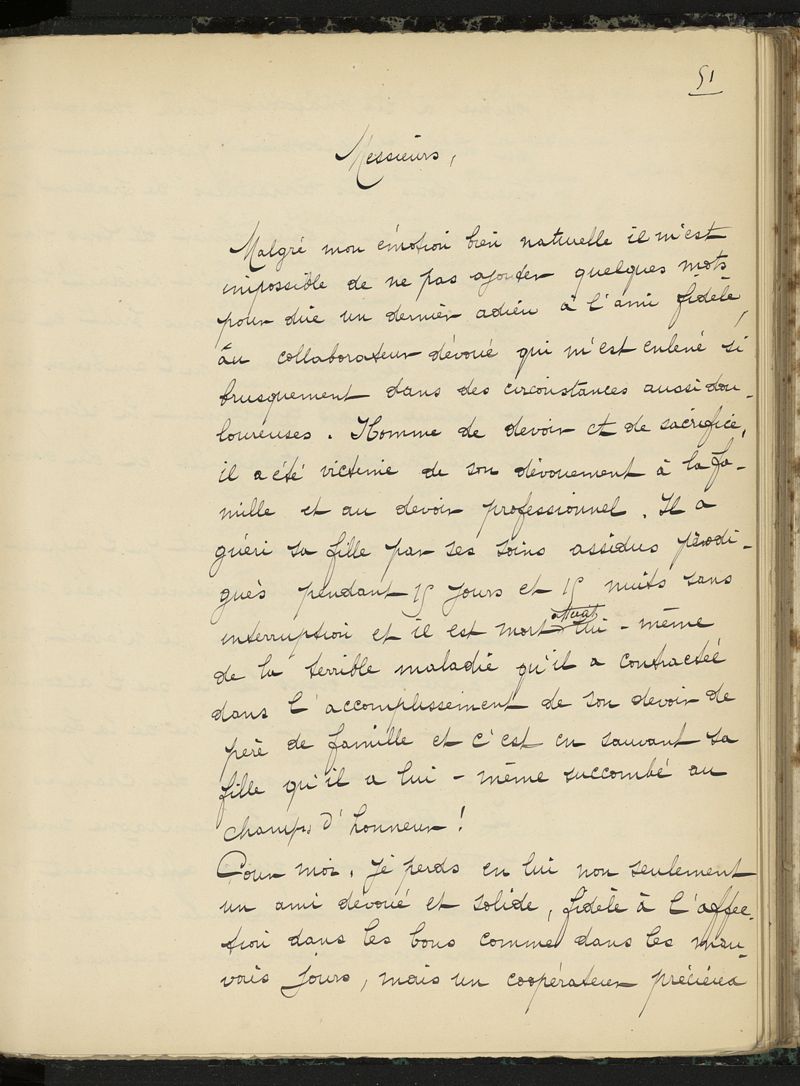 51
Messieurs,
Malgré mon émotion bien naturelle il m'est
impossible de ne pas ajouter quelques mots
pour dire un dernier adieu à l'ami fidèle,
au collaborateur dévoué qui m'est enlevé si
brusquement dans des circonstances aussi dou-
loureuses. Homme de devoir et de sacrifice,
il a été victime de son dévouement à la fa-
mille et au devoir professionnel. Il a
guéri sa fille par ses soins assidus prodi-
gués pendant 15 jours et 15 nuits sans
interruption et il est mort lui-même
de la terrible maladie qu'il a contractée
dans l'accomplissement de son devoir de
père de famille et c'est en sauvant sa
fille qu'il a lui-même succombé au
champ d'honneur!
Pour moi, je perds en lui non seulement
un ami dévoué et solide, fidèle à l'affec-
tion dans les bons comme dans les mau-
vais jours, mais un coopérateur précieux